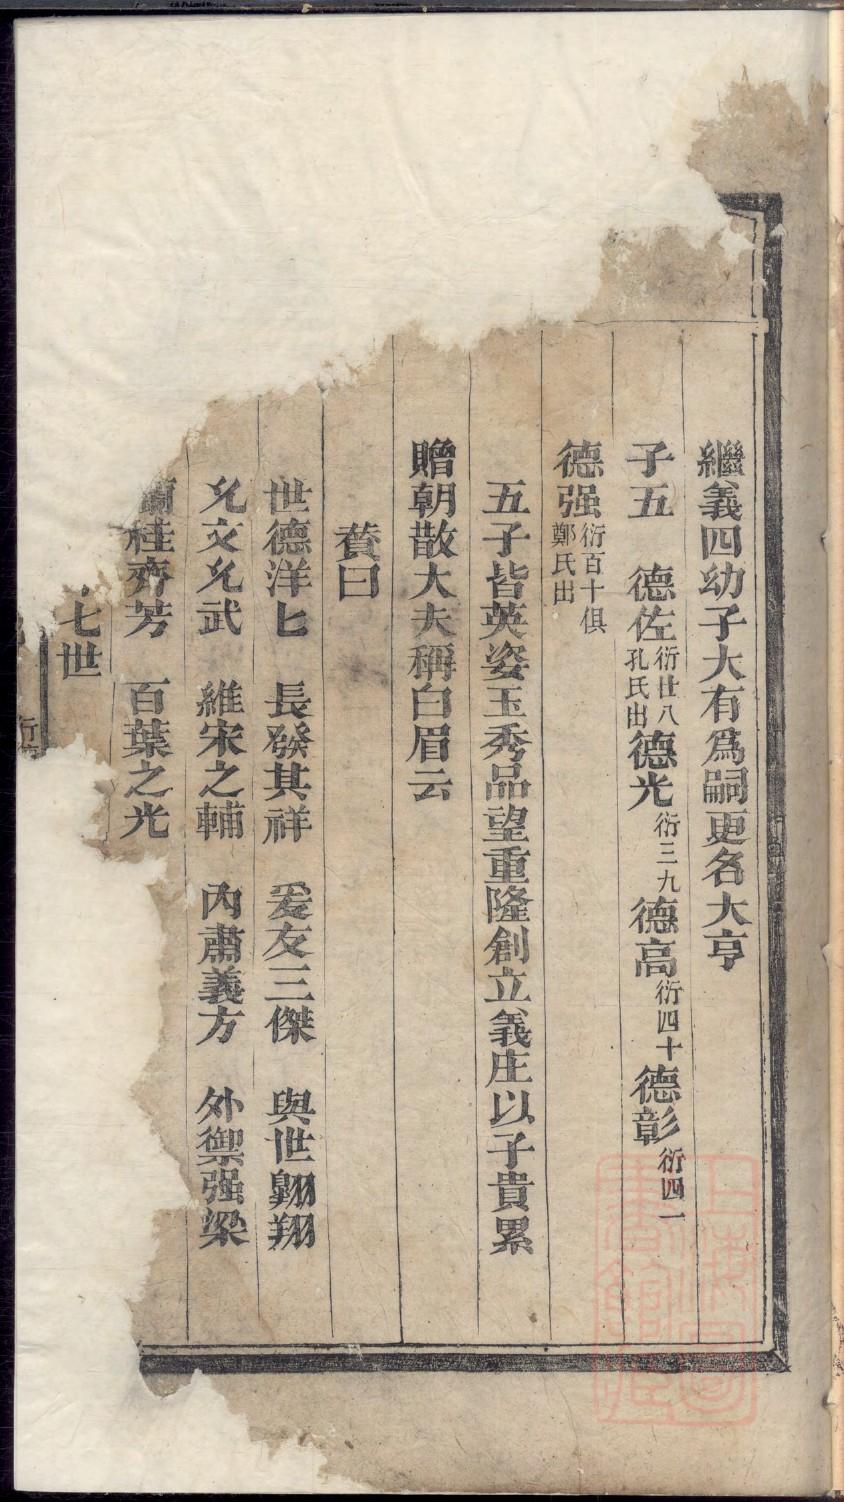 繼義四幼子大有爲嗣更名大亨
子五　德佐衍廿八孔氏出德光衍三九德高衍四十德彰衍四一
德强衍百十俱鄭氏出
五子皆英姿玉秀品望重隆創立義庄以子貴累
贈朝散大夫稱白眉云
賛曰
世德洋匕　長發其祥　爰友三傑　與世翺翔
允文允武　維宋之輔　内肅義方　外禦强梁
蘭桂齊芳　百葉之光
七世
上海圖書館藏